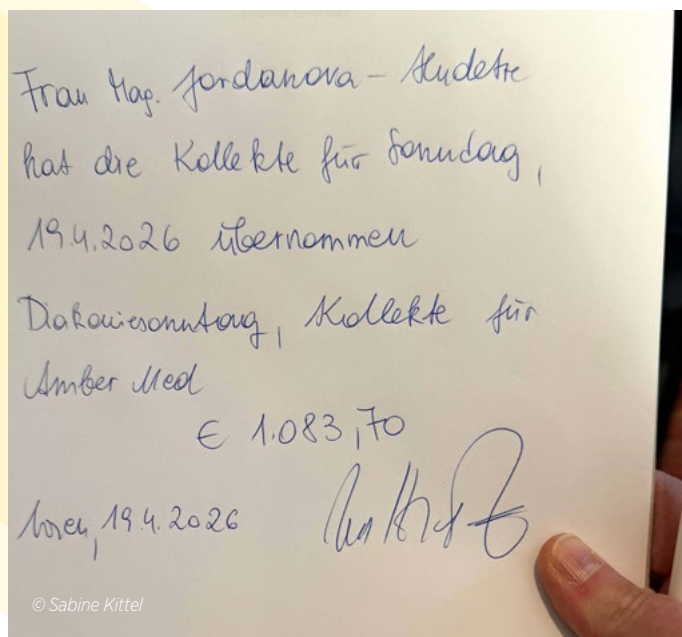 Frau Mag. Jordanova-Hudetz
hat die Kollekte für Sonntag,
19.4.2026 übernommen
Diakoniesonntag, Kollekte für
Amber Med
€ 1.083,70
Wien, 19.4.2026
© Sabine Kittel